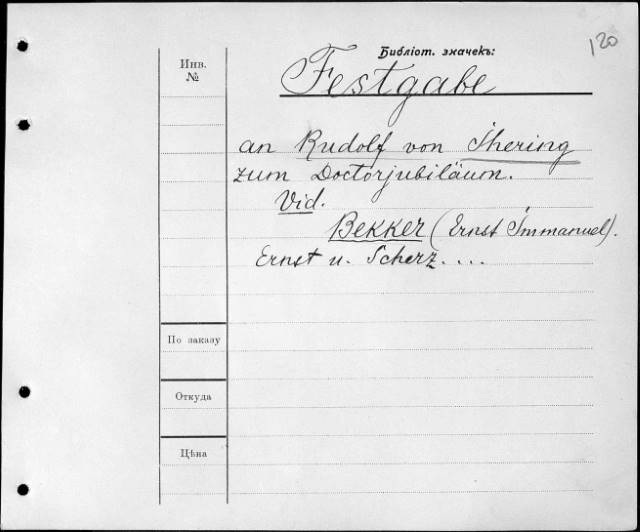 120
Библіот. значекъ:
Инв.
№
Festgabe
an Rudolf von Ihering
zum Doctorjubiläum.
Vid.
Bekker (Ernst Immanuel).
Ernst u. Scherz. ...
По заказу
Откуда
Цѣна